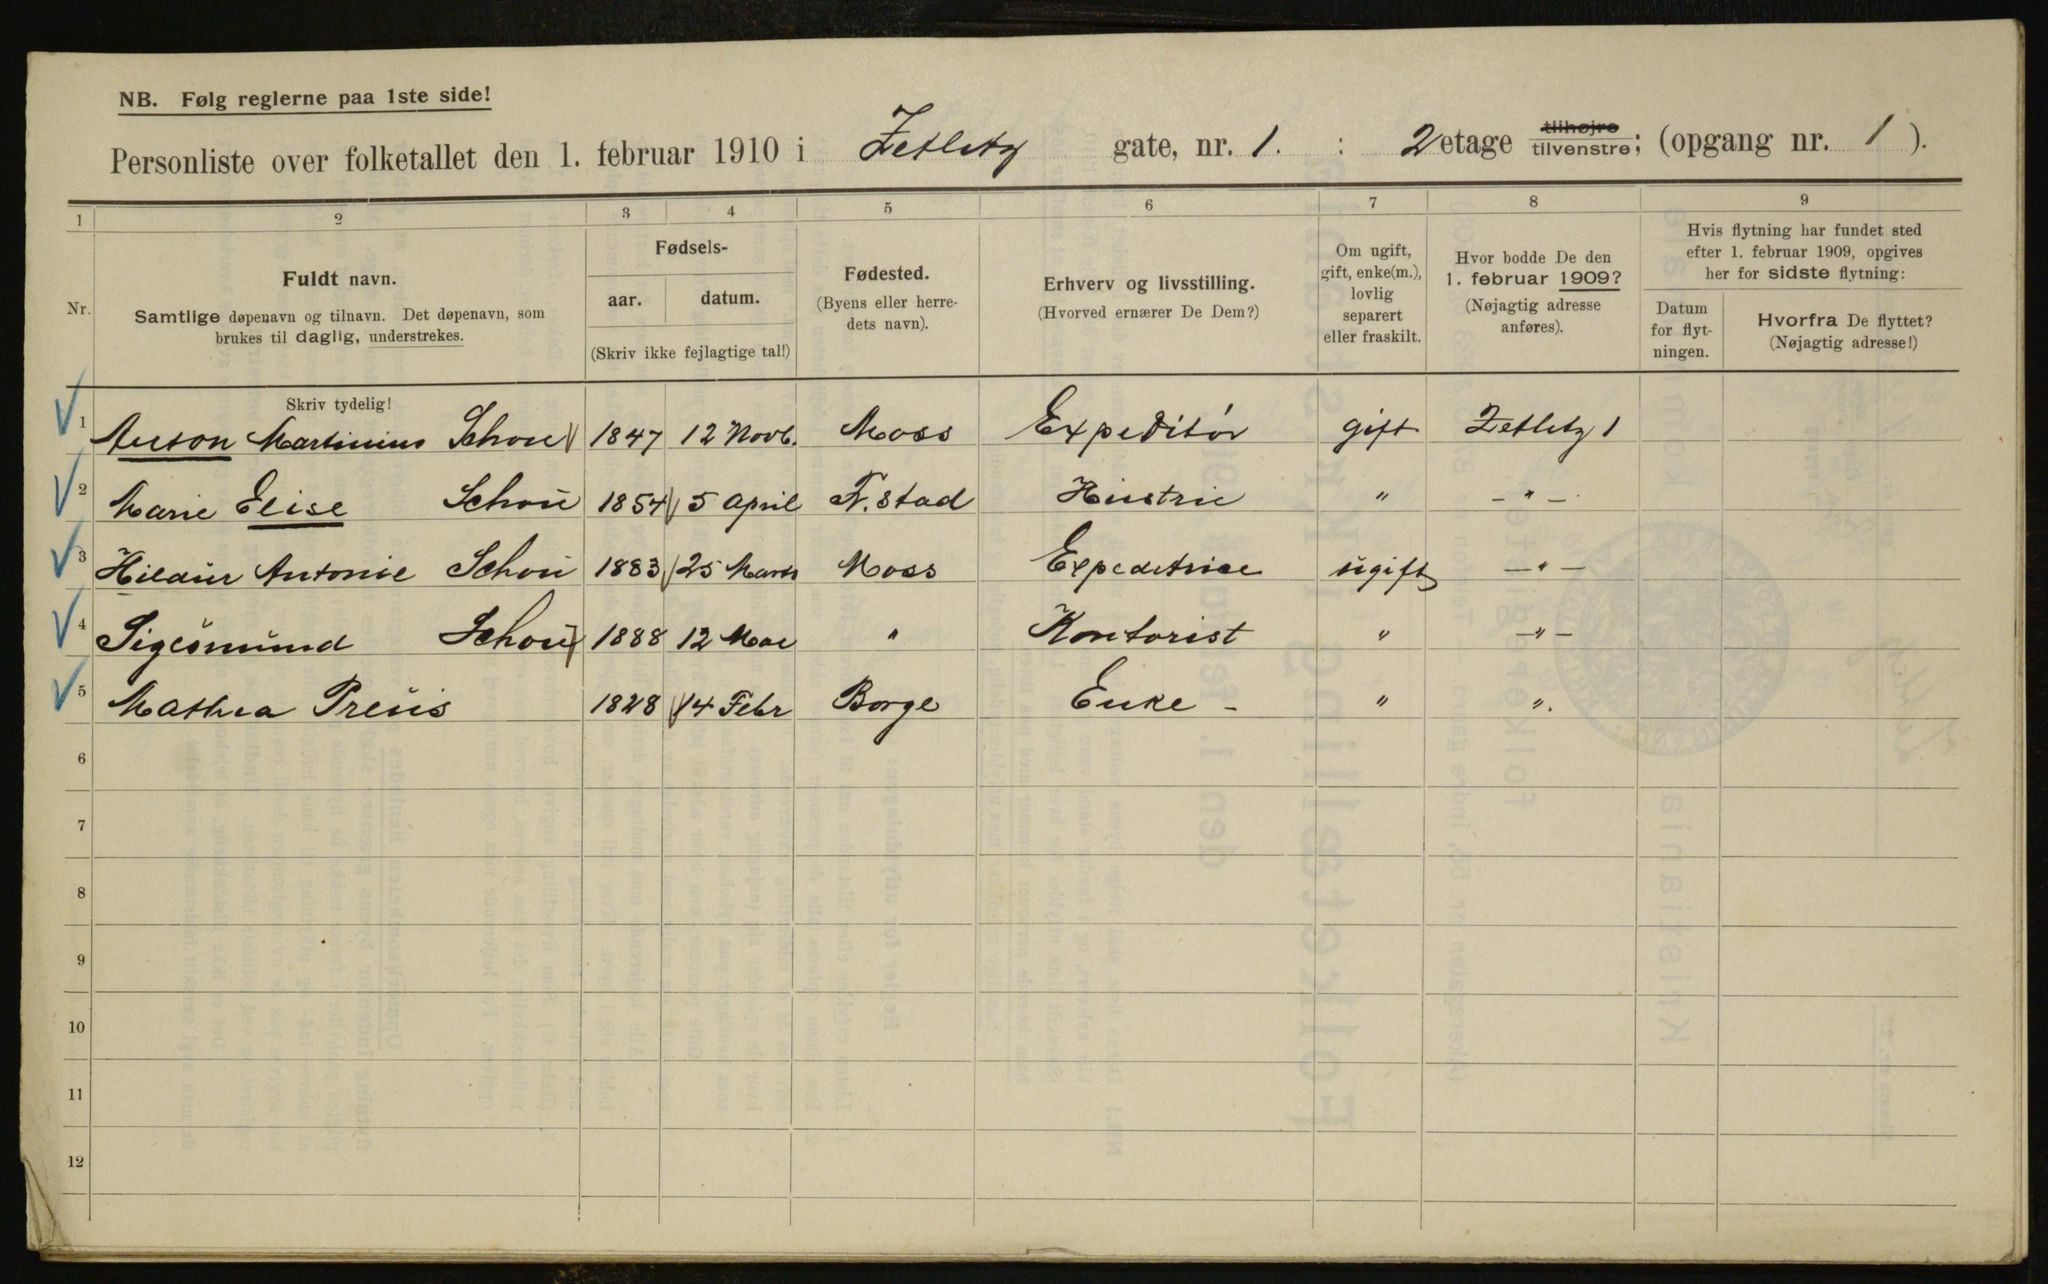 NB. Følg reglerne paa 1ste side!
Personliste over folketallet den 1. februar 1910 i Zetlitz gate, nr. 1. : 2 etage tilhøjre tilvenstre; (opgang nr. 1 ).
1 2 3 4 5 6 7 8 9
Nr.
Fuldt navn.
Samtlige døpenavn og tilnavn. Det døpenavn, som
brukes til daglig, understrekes.
Fødsels-
aar. datum.
(Skriv ikke fejlagtige tal!)
Fødested.
(Byens eller herre-
dets navn).
Erhverv og livsstilling.
(Hvorved ernærer De Dem?)
Om ugift,
gift, enke(m.),
lovlig
separert
eller fraskilt.
Hvor bodde De den
1. februar 1909?
(Nøjagtig adresse
anføres).
Hvis flytning har fundet sted
efter 1. februar 1909, opgives
her for sidste flytning:
Datum
for flyt-
ningen.
Hvorfra De flyttet?
(Nøjagtig adresse!)
Skriv tydelig!
1 Anton Martinius Schou 1847 12 Novb. Moss Expeditør gift Zetletz 1
2 Marie Elise Schou 1854 5 April F. stad Hustru " – " –
3 Hildur Antonie Schou 1883 25 Marts Moss Expeditrice ugift – " –
4 Sigesmund Schou 1888 12 Mae " Kontorist " – " –
5 Mathea Preus 1828 14 Febr Borge Enke – " ".
6
7
8
9
10
11
12